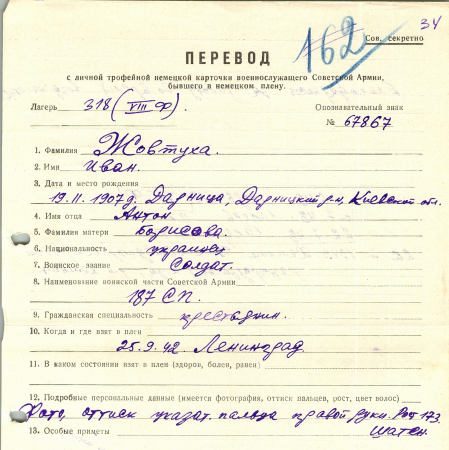 34
162
Сов. секретно
ПЕРЕВОД
с личной трофейной немецкой карточки военнослужащего Советской Армии,
бывшего в немецком плену.
Лагерь 318 (VIII Ф). Опознавательный знак
№ 67867
1. Фамилия Жовтуха.
2. Имя Иван.
3. Дата и место рождения
19.11.1907г. Дарница, Дарницкий р-н, Киевской обл.
4. Имя отца Антон
5. Фамилия матери Борисова.
6. Национальность украинец.
7. Воинское звание Солдат.
8. Наименование воинской части Советской Армии
187 СП.
9. Гражданская специальность крестьянин.
10. Когда и где взят в плен
25.9.42. Ленинград
11. В каком состоянии взят в плен (здоров, болен, ранен)
12. Подробные персональные данные (имеется фотография, оттиск пальцев, рост, цвет волос)
Фото, оттиск указат. пальца правой руки. Рост 173.
13. Особые приметы шатен.